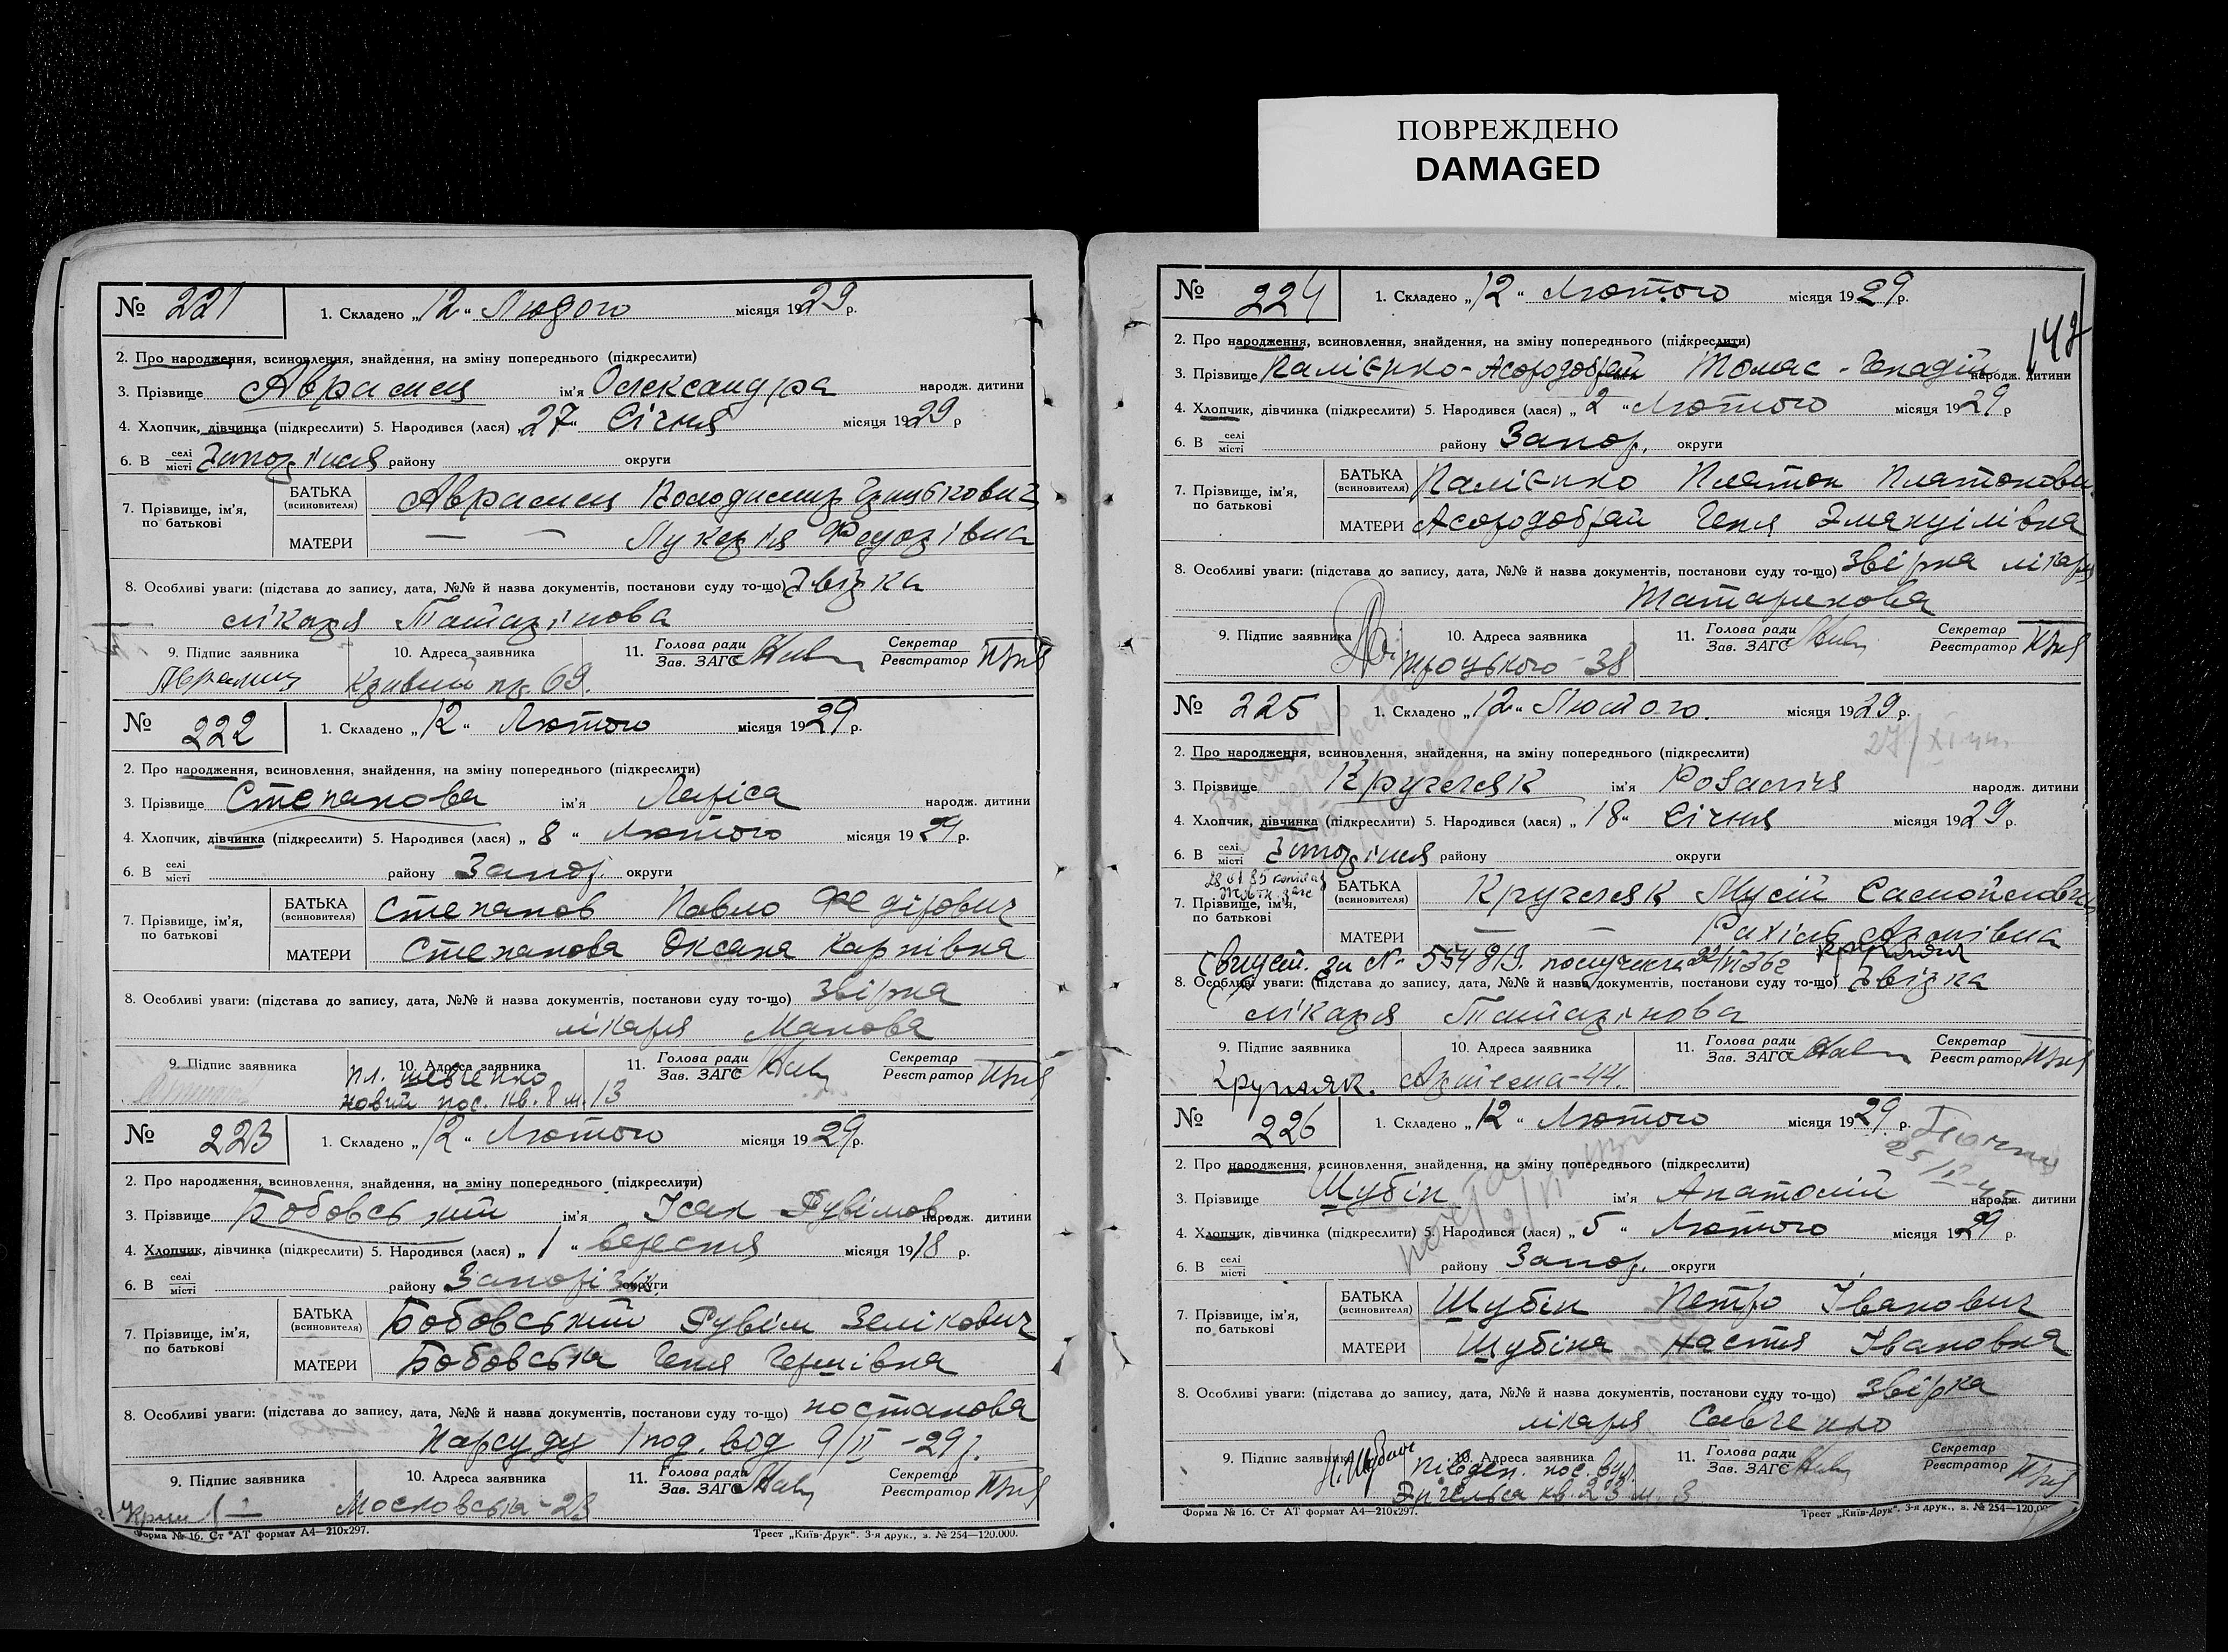 ПОВРЕЖДЕНО
DAMAGED
№ 221 1. Складено „12“ Людого місяця 1929 р.
2. Про народження, всиновлення, знайдення, на зміну попереднього (підкреслити)
3. Прізвище Аврамец ім'я Олександра народж. дитини
4. Хлопчик, дівчинка (підкреслити) 5. Народився (лася) „27“ Січня місяця 1929 р
6. В селі місті Запоріжжя району округи
7. Прізвище, ім'я, по батькові
БАТЬКА (всиновителя) Аврамец Володимир Грицькович
МАТЕРИ — — Лукерія Федорівна
8. Особливі уваги: (підстава до запису, дата, №№ й назва документів, постанови суду то-що) Звірка
лікаря Татарінова
9. Підпис заявника 10. Адреса заявника 11. Голова ради Зав. ЗАГС Секретар Реєстратор
Кривий пр. 69.
№ 222 1. Складено „12“ Лютого місяця 1929 р.
2. Про народження, всиновлення, знайдення, на зміну попереднього (підкреслити)
3. Прізвище Степанова ім'я Лариса народж. дитини
4. Хлопчик, дівчинка (підкреслити) 5. Народився (лася) „8“ Лютого місяця 1929 р.
6. В селі місті району Запор. округи
7. Прізвище, ім'я, по батькові
БАТЬКА (всиновителя) Степанов Павло Федірович
МАТЕРИ Степанова Оксана Карпівна
8. Особливі уваги: (підстава до запису, дата, №№ й назва документів, постанови суду то-що) звірка
лікаря Манова
9. Підпис заявника 10. Адреса заявника 11. Голова ради Зав. ЗАГС Секретар Реєстратор
пл. Шевченко
новий пос. кв. 8 м. 13
№ 223 1. Складено „12“ Лютого місяця 1929 р.
2. Про народження, всиновлення, знайдення, на зміну попереднього (підкреслити)
3. Прізвище Бобовський ім'я Ісак Рувімов. народж. дитини
4. Хлопчик, дівчинка (підкреслити) 5. Народився (лася) „1“ вересня місяця 1918 р.
6. В селі місті району Запоріз округи
7. Прізвище, ім'я, по батькові
БАТЬКА (всиновителя) Бобовський Рувім Зелікович
МАТЕРИ Бобовська Геня Гершівна
8. Особливі уваги: (підстава до запису, дата, №№ й назва документів, постанови суду то-що) постанова
Нарсуду 1 под. від 9/II-29 р.
9. Підпис заявника 10. Адреса заявника 11. Голова ради Зав. ЗАГС Секретар Реєстратор
Московська-23
Форма № 16. Ст АТ формат А4—210х297. Трест „Київ-Друк“. 3-я друк., з. № 254—120.000.
148
№ 224 1. Складено „12“ Лютого місяця 1929 р.
2. Про народження, всиновлення, знайдення, на зміну попереднього (підкреслити)
3. Прізвище Палієнко-Асородобрай Томас-Генадій народж. дитини
4. Хлопчик, дівчинка (підкреслити) 5. Народився (лася) „2“ Лютого місяця 1929 р
6. В селі місті району Запор. округи
7. Прізвище, ім'я, по батькові
БАТЬКА (всиновителя) Палієнко Платон Платонович
МАТЕРИ Асородобрай Геня Эмануілівна
8. Особливі уваги: (підстава до запису, дата, №№ й назва документів, постанови суду то-що) звірка лікаря
Татаринова
9. Підпис заявника 10. Адреса заявника 11. Голова ради Зав. ЗАГС Секретар Реєстратор
Троцького-38
№ 225 1. Складено „12“ Лютого. місяця 1929 р.
2. Про народження, всиновлення, знайдення, на зміну попереднього (підкреслити)
3. Прізвище Кругляк ім'я Розалія народж. дитини
4. Хлопчик, дівчинка (підкреслити) 5. Народився (лася) „18“ Січня місяця 1929 р.
6. В селі місті Запоріжжя району округи
7. Прізвище, ім'я, по батькові
БАТЬКА (всиновителя) Кругляк Мусій Самойлович
МАТЕРИ — — Рахіль Аронівна
за № 554819. получила
8. Особливі уваги: (підстава до запису, дата, №№ й назва документів, постанови суду то-що) Звірка
лікаря Татарінова
9. Підпис заявника 10. Адреса заявника 11. Голова ради Зав. ЗАГС Секретар Реєстратор
Кругляк. Артема-44.
№ 226 1. Складено „12“ Лютого місяця 1929 р.
2. Про народження, всиновлення, знайдення, на зміну попереднього (підкреслити)
3. Прізвище Шубін ім'я Анатолий народж. дитини
4. Хлопчик, дівчинка (підкреслити) 5. Народився (лася) „5“ Лютого місяця 1929 р.
6. В селі місті району Запор. округи
7. Прізвище, ім'я, по батькові
БАТЬКА (всиновителя) Шубін Петро Іванович
МАТЕРИ Шубіна Настя Івановна
8. Особливі уваги: (підстава до запису, дата, №№ й назва документів, постанови суду то-що) звірка
лікаря Савченко
9. Підпис заявника 10. Адреса заявника 11. Голова ради Зав. ЗАГС Секретар Реєстратор
Півден. пос. вул.
Энгельса кв. 23 м. 3
Форма № 16. Ст АТ формат А4—210х297. Трест „Київ-Друк“. 3-я друк., з. № 254—120.00